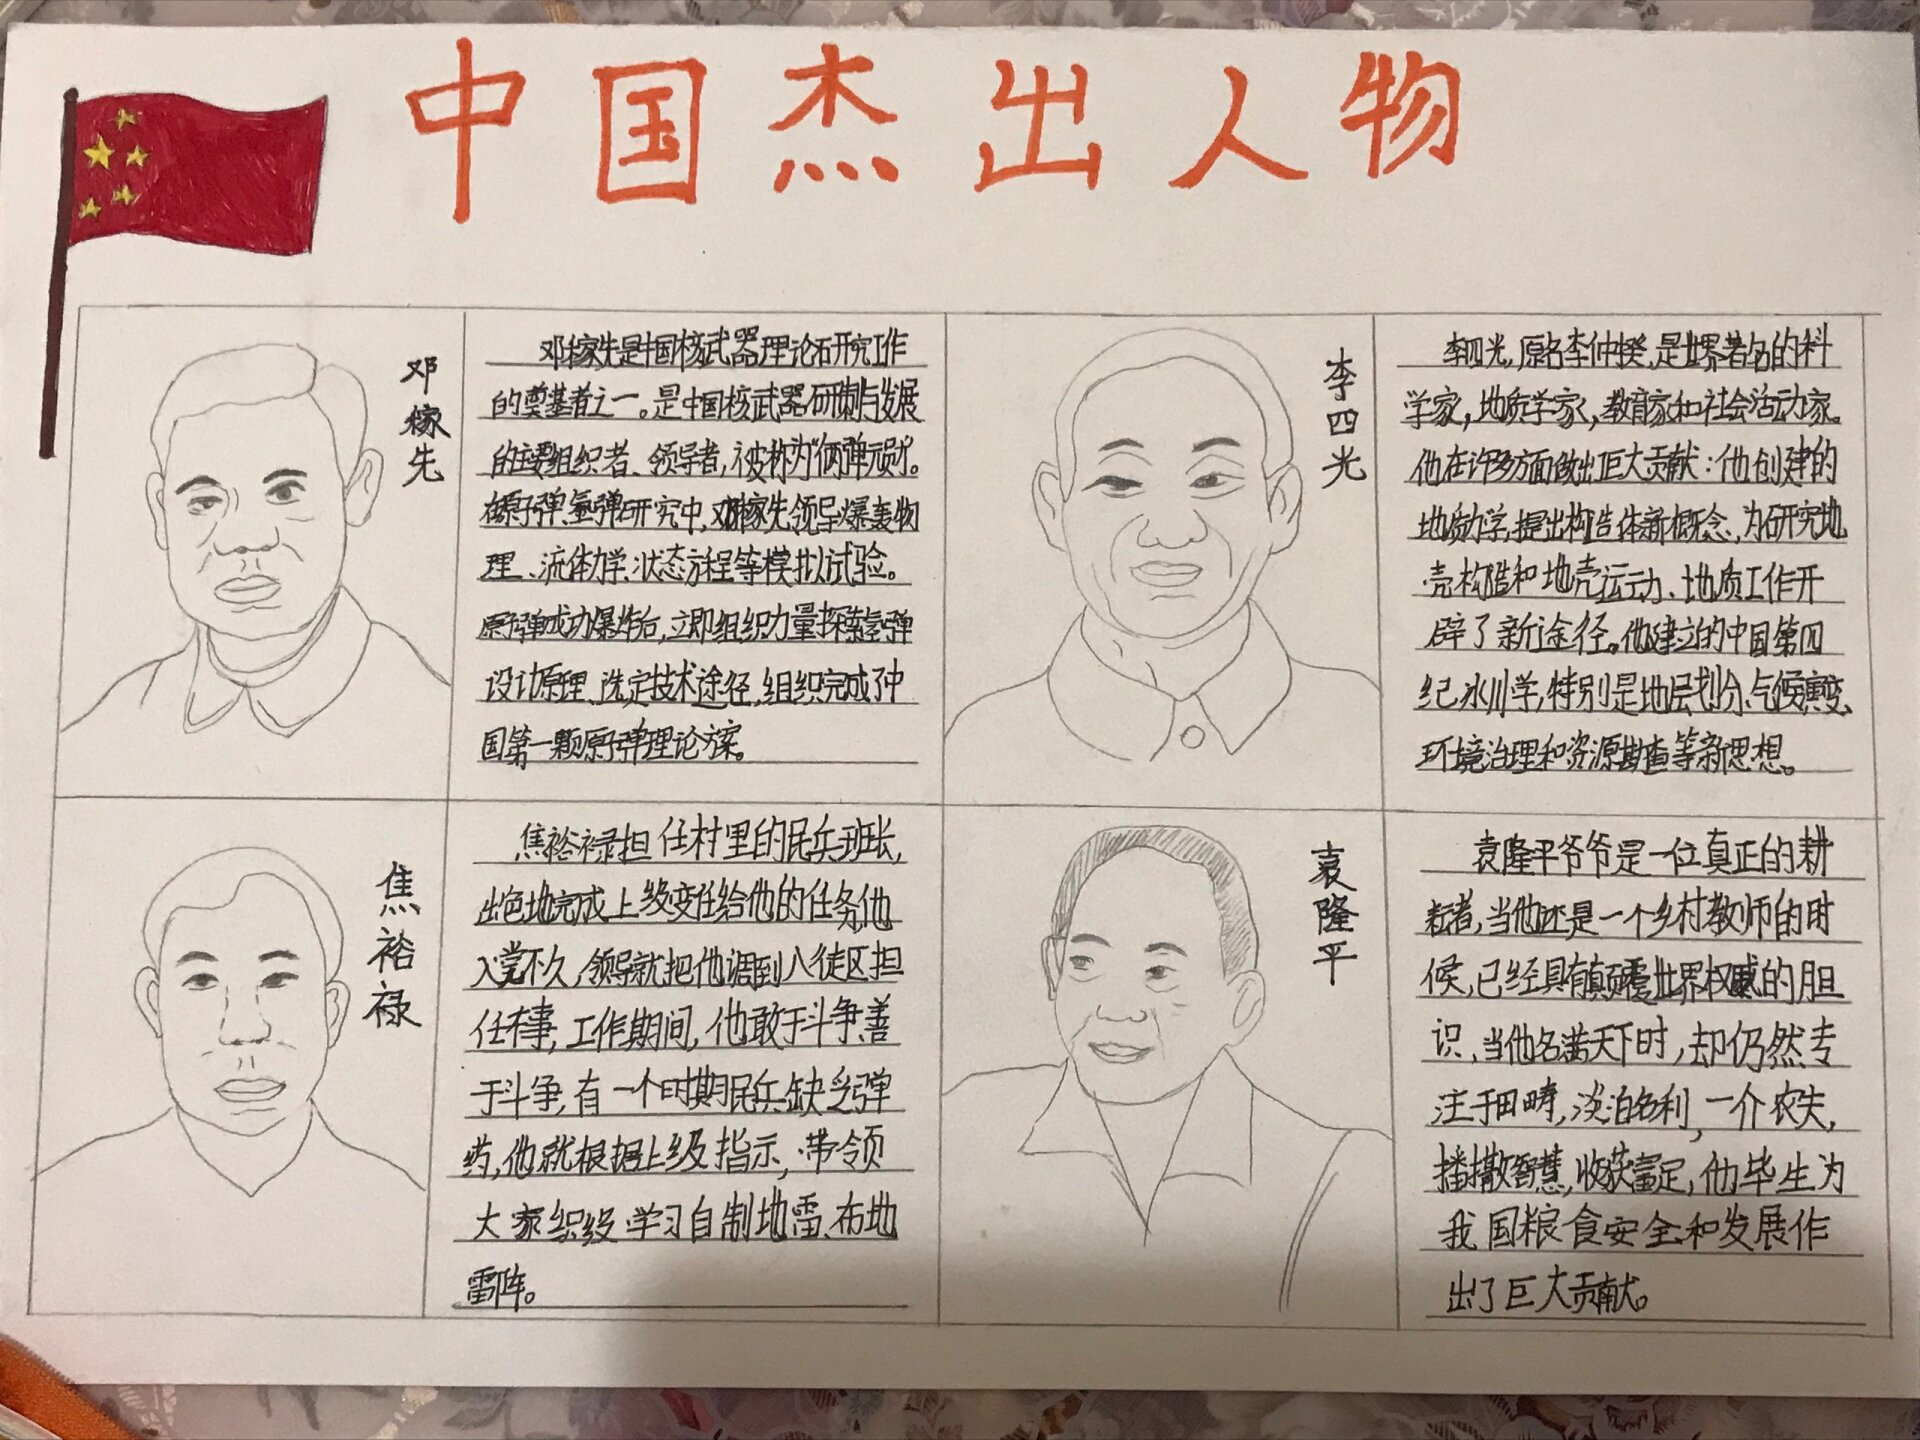 中国杰出人物
邓稼先
邓稼先是中国核武器理论研究工作
的奠基者之一。是中国核武器研制与发展
的主要组织者、领导者,被称为“两弹元勋”。
在原子弹、氢弹研究中,邓稼先领导爆轰物
理、流体力学、状态方程等模拟试验。
原子弹成功爆炸后,立即组织力量探索氢弹
设计原理、选定技术途径,组织完成了中
国第一颗原子弹理论方案。
李四光
李四光,原名李仲揆,是世界著名的科
学家,地质学家,教育家和社会活动家。
他在许多方面做出巨大贡献:他创建的
地质力学,提出构造体新概念,为研究地
壳构造和地壳运动、地质工作开
辟了新途径。他建立的中国第四
纪冰川学,特别是地层划分、气候演变、
环境治理和资源勘查等新思想。
焦裕禄
焦裕禄担任村里的民兵班长,
出色地完成上级交任给他的任务,他
入党不久,领导就把他调到八徒区担
任干事,工作期间,他敢于斗争,善
于斗争,有一个时期民兵缺乏弹
药,他就根据上级指示,带领
大家织级学习自制地雷、布地
雷阵。
袁隆平
袁隆平爷爷是一位真正的耕
耘者,当他还是一个乡村教师的时
候,已经具有颠覆世界权威的胆
识,当他名满天下时,却仍然专
注于田畴,淡泊名利,一介农夫,
播撒智慧,收获富足,他毕生为
我国粮食安全和发展作
出了巨大贡献。